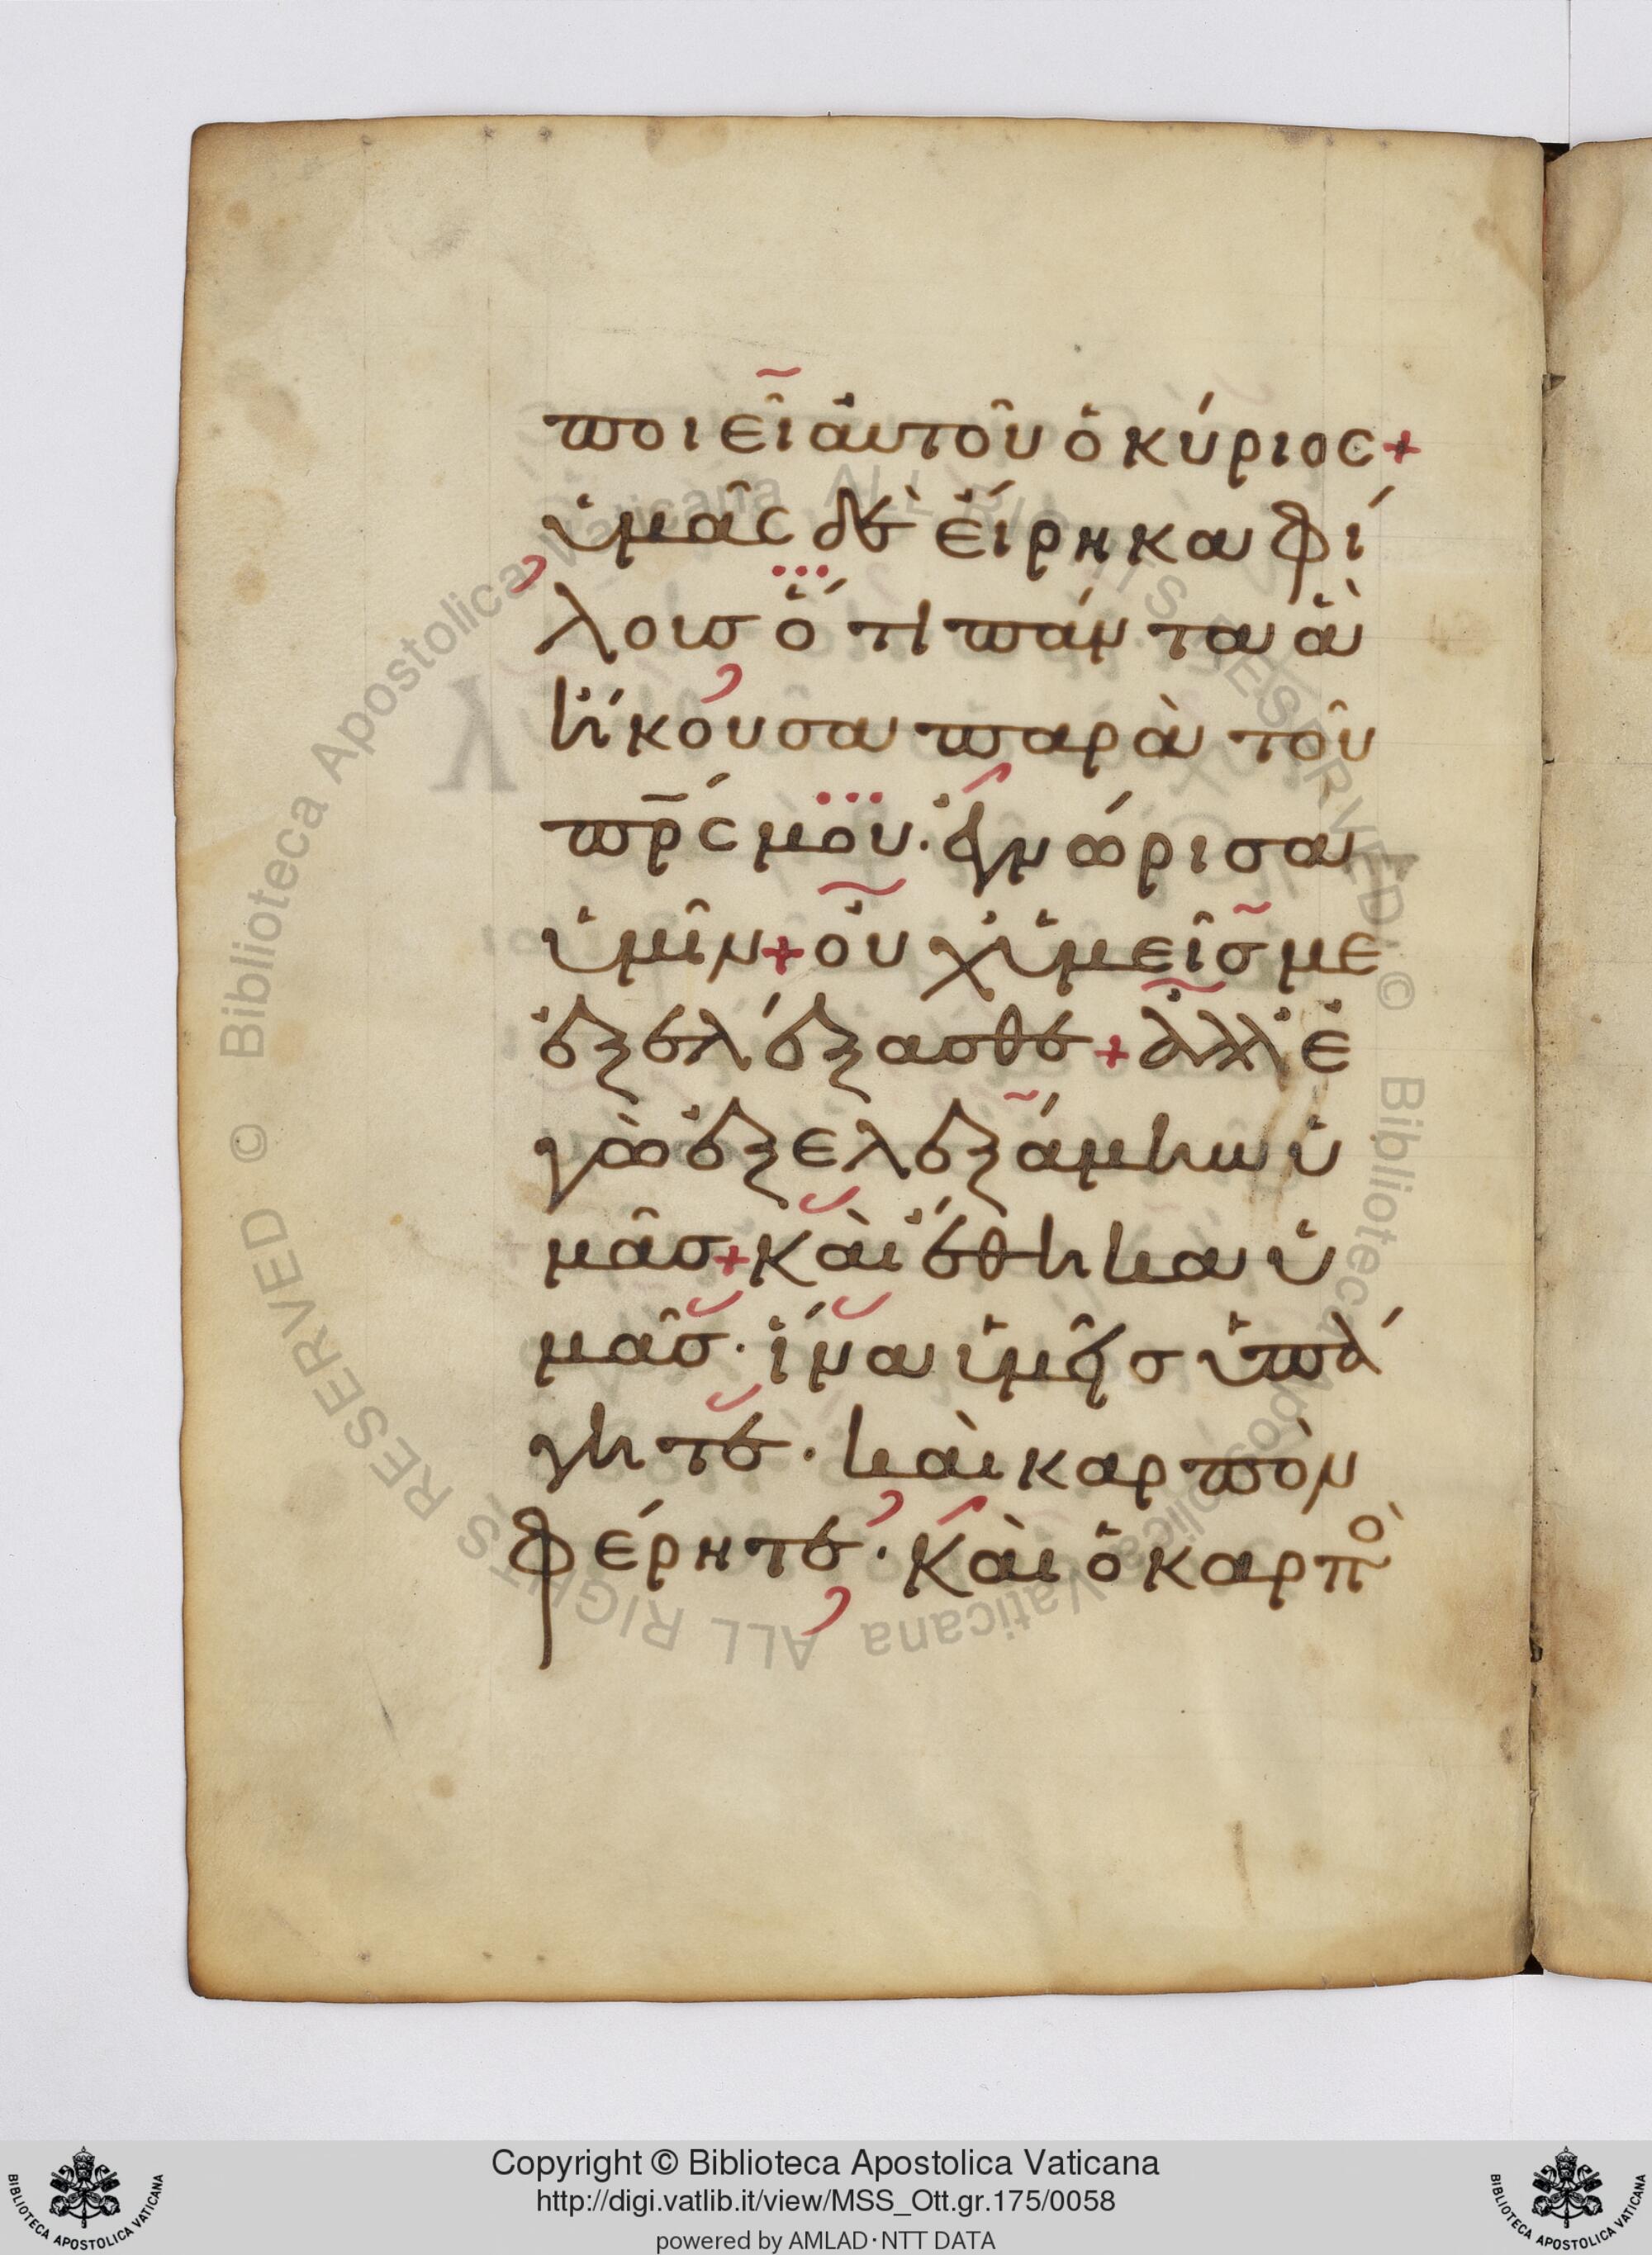 ποιεῖ ἀυτοῦ ὁ κύριος+
ὑμᾶς δὲ ἐίρηκα φί
λοισ ὅτι πάντα ἃ
ἤκουσα παρὰ τοῦ
πρ̅ς μου· ἐγνώρισα
ὑμῖν+ οὐχ ὑμεῖσ με
ἐξελέξασθε+ ἀλλ' ἐ
γὼ ἐξελεξάμην ὑ
μᾶσ+ καὶ ἔθηκα ὑ
μᾶσ· ἵνα ὑμεῖσ ὑπά
γητε· καὶ καρπὸν
φέρητε· Καὶ ὁ καρπὸ
Biblioteca Apostolica Vaticana ALL RIGHTS RESERVED ©
Biblioteca Apostolica Vaticana ALL RIGHTS RESERVED ©
Copyright © Biblioteca Apostolica Vaticana
http://digi.vatlib.it/view/MSS_Ott.gr.175/0058
powered by AMLAD·NTT DATA
BIBLIOTECA APOSTOLICA VATICANA
BIBLIOTECA APOSTOLICA VATICANA